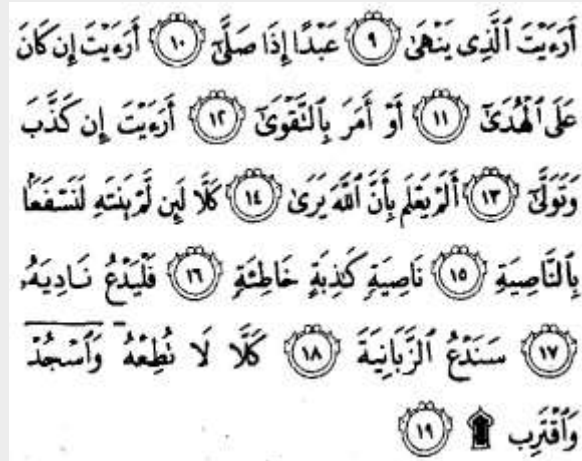 أَرَءَيْتَ ٱلَّذِى يَنْهَىٰ ٩ عَبْدًا إِذَا صَلَّىٰٓ ١٠ أَرَءَيْتَ إِن كَانَ
عَلَى ٱلْهُدَىٰٓ ١١ أَوْ أَمَرَ بِٱلتَّقْوَىٰٓ ١٢ أَرَءَيْتَ إِن كَذَّبَ
وَتَوَلَّىٰٓ ١٣ أَلَمْ يَعْلَم بِأَنَّ ٱللَّهَ يَرَىٰ ١٤ كَلَّا لَئِن لَّمْ يَنتَهِ لَنَسْفَعًۢا
بِٱلنَّاصِيَةِ ١٥ نَاصِيَةٍ كَٰذِبَةٍ خَاطِئَةٍ ١٦ فَلْيَدْعُ نَادِيَهُۥ
١٧ سَنَدْعُ ٱلزَّبَانِيَةَ ١٨ كَلَّا لَا تُطِعْهُ وَٱسْجُدْ
وَٱقْتَرِب ۩ ١٩